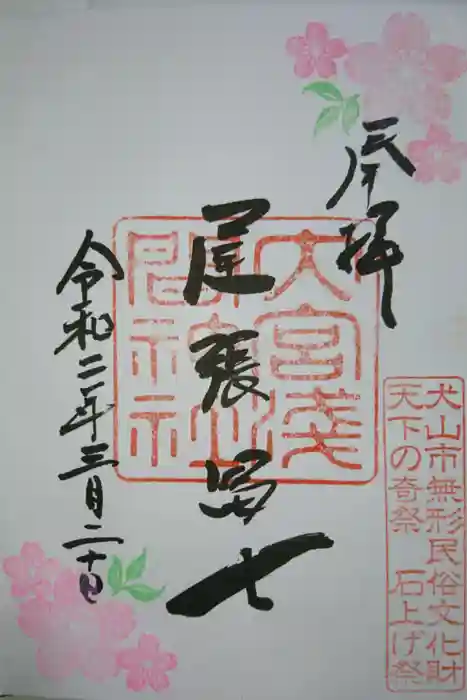 奉拝
大宮淺
間神社
尾張冨士
令和二年三月二十日
犬山市無形民俗文化財
天下の奇祭 石上げ祭